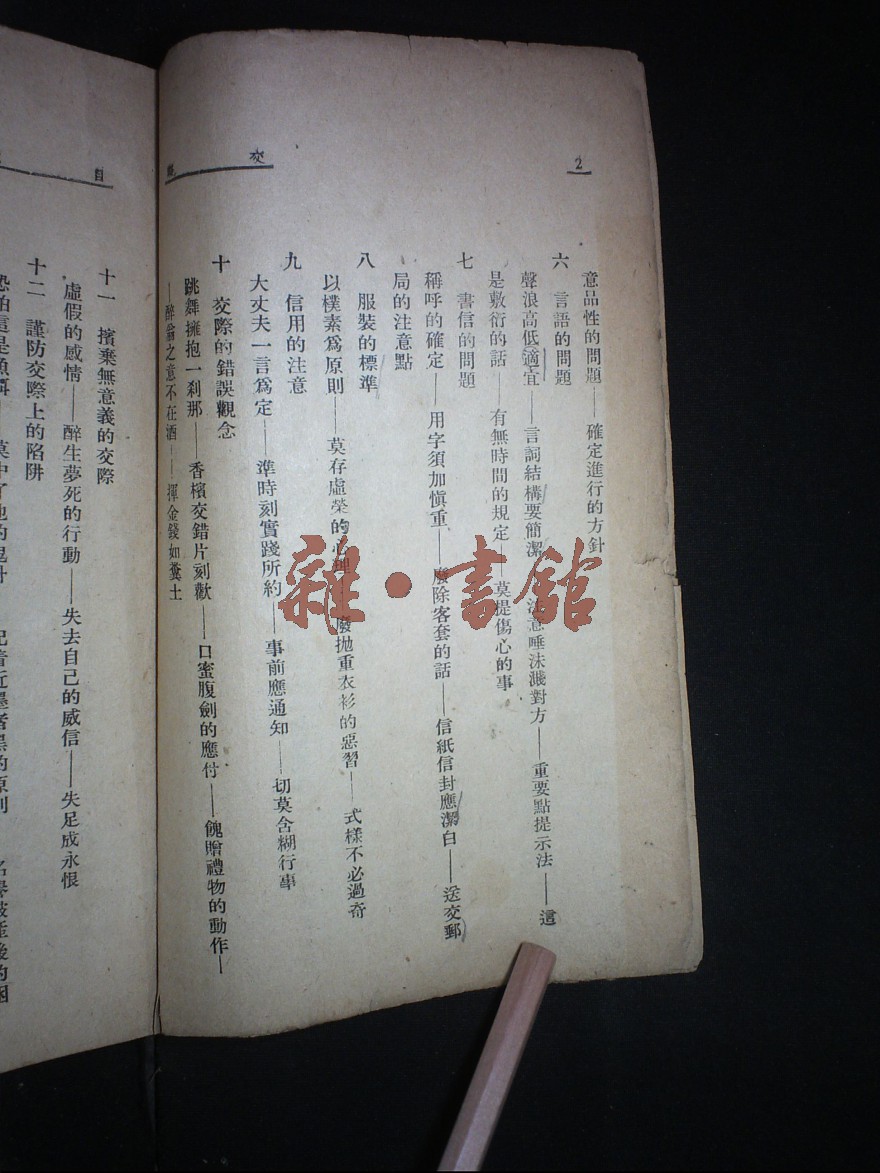 2
交
意品性的問題——確定進行的方針
六　言語的問題
聲浪高低適宜——言詞結構要簡潔——注意唾沫濺對方——重要點提示法——這
是敷衍的話——有無時間的規定——莫提傷心的事
七　書信的問題
稱呼的確定——用字須加愼重——廢除客套的話——信紙信封應潔白——送交郵
局的注意點
八　服裝的標準
以樸素爲原則——莫存虛榮的心理——廢拋重衣衫的惡習——式樣不必過奇
九　信用的注意
大丈夫一言爲定——準時刻實踐所約——事前應通知——切莫含糊行事
十　交際的錯誤觀念
跳舞擁抱一剎那——香檳交錯片刻歡——口蜜腹劍的應付——餽贈禮物的動作—
—醉翁之意不在酒——揮金錢如糞土
目
十一　擯棄無意義的交際
虛假的感情——醉生夢死的行動——失去自己的威信——失足成永恨
十二　謹防交際上的陷阱
雜·書館